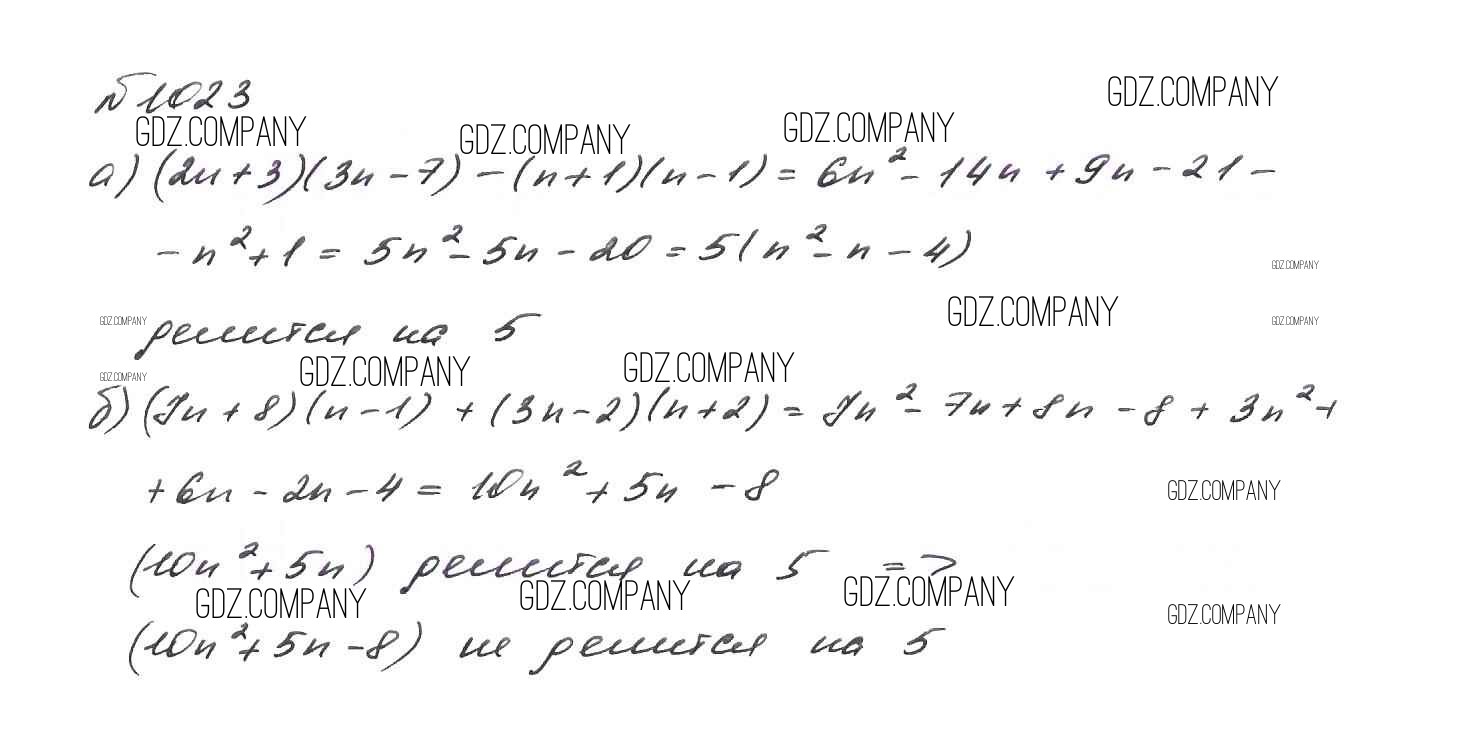 GDZ.COMPANY
№1023
GDZ.COMPANY GDZ.COMPANY GDZ.COMPANY
а) (2n+3)(3n-7)-(n+1)(n-1)=6n²-14n+9n-21-
-n²+1=5n²-5n-20=5(n²-n-4)
GDZ.COMPANY
GDZ.COMPANY делится на 5 GDZ.COMPANY GDZ.COMPANY
GDZ.COMPANY GDZ.COMPANY GDZ.COMPANY
б) (7n+8)(n-1)+(3n-2)(n+2)=7n²-7n+8n-8+3n²+
+6n-2n-4=10n²+5n-8
GDZ.COMPANY
(10n²+5n) делится на 5 =>
GDZ.COMPANY GDZ.COMPANY GDZ.COMPANY GDZ.COMPANY
(10n²+5n-8) не делится на 5